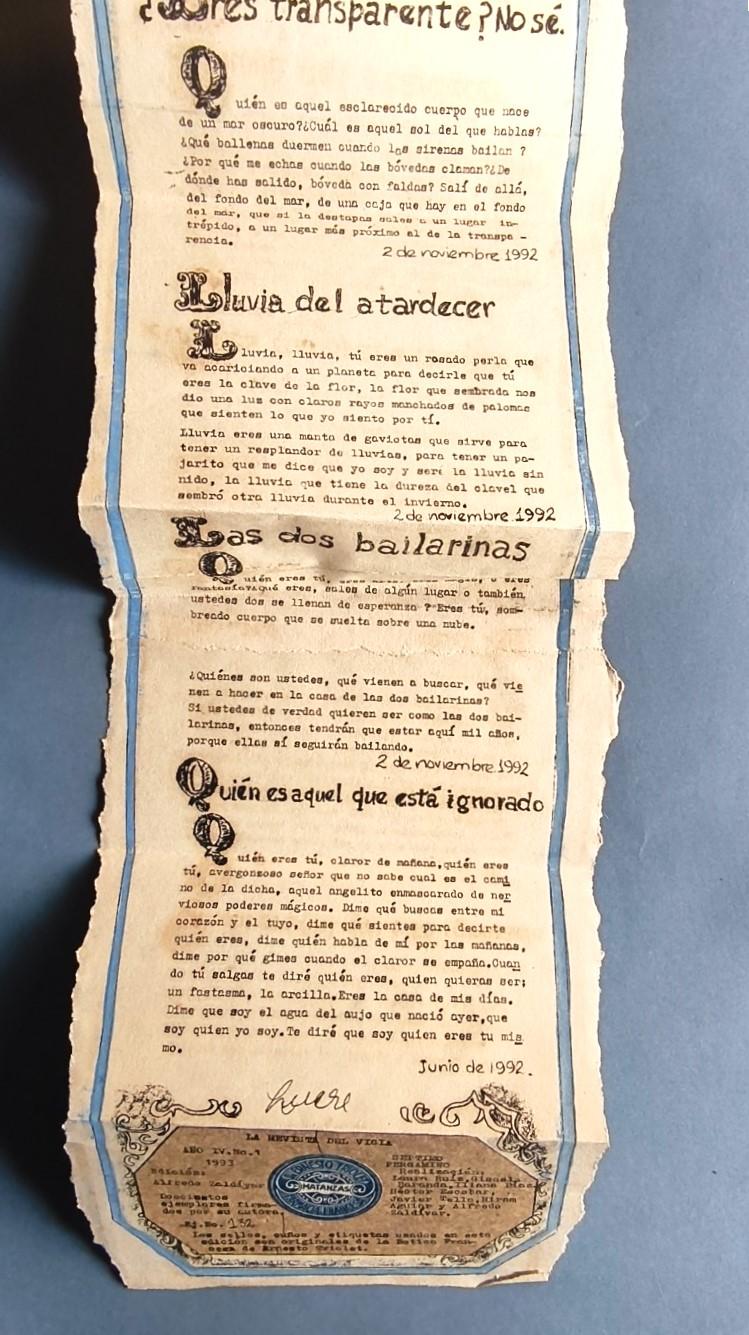 ¿Eres transparente? No sé.
Quién es aquel esclarecido cuerpo que nace
de un mar oscuro?¿Cuál es aquel sol del que hablas?
¿Qué ballenas duermen cuando las sirenas bailan ?
¿Por qué me echas cuando las bóvedas claman?¿De
dónde has salido, bóveda con faldas? Salí de allá,
del fondo del mar, de una caja que hay en el fondo
del mar, que si la destapas sales a un lugar in-
trépido, a un lugar más próximo al de la transpa -
rencia.
2 de noviembre 1992
Lluvia del atardecer
Lluvia, lluvia, tú eres un rosado perla que
va acariciando a un planeta para decirle que tú
eres la clave de la flor, la flor que sembrada nos
dio una luz con claros rayos manchados de palomas
que sienten lo que yo siento por tí.
Lluvia eres una manta de gaviotas que sirve para
tener un resplandor de lluvias, para tener un pa-
jarito que me dice que yo soy y seré la lluvia sin
nido, la lluvia que tiene la dureza del clavel que
sembró otra lluvia durante el invierno.
2 de noviembre 1992
Las dos bailarinas
Quién eres tú, o eres
fantasía?¿Qué eres, sales de algún lugar o también
ustedes dos se llenan de esperanza ? Eres tú, som-
breado cuerpo que se suelta sobre una nube.
¿Quiénes son ustedes, qué vienen a buscar, qué vie
nen a hacer en la casa de las dos bailarinas?
Si ustedes de verdad quieren ser como las dos bai-
larinas, entonces tendrán que estar aquí mil años,
porque ellas sí seguirán bailando.
2 de noviembre 1992
Quién es aquel que está ignorado
Quién eres tú, claror de mañana,quién eres
tú, avergonzoso señor que no sabe cual es el cami
no de la dicha, aquel angelito enmascarado de ner
viosos poderes mágicos. Dime qué buscas entre mi
corazón y el tuyo, dime qué sientes para decirte
quién eres, dime quién habla de mí por las mañanas,
dime por qué gimes cuando el claror se empaña.Cuan
do tú salgas te diré quién eres, quien quieras ser;
un fastasma, la arcilla.Eres la casa de mis días.
Dime que soy el agua del aujo que nació ayer,que
soy quien yo soy.Te diré que soy quien eres tu mis
mo.
Junio de 1992.
LA REVISTA DEL VIGIA
AÑO IV.No.1
1993
Edición:
Alfredo Zaldívar
Doscientos
ejemplares firma-
dos por su autora.
Ej.No. 132
ERNESTO TRIOLET
MATANZAS
SEPTIMO
PERGAMINO
Realización:
Laura Ruiz,Gissel
Baranda,Iliana
Héctor Escobar,
Javier Tello,Hiram
Aguiar y Alfredo
Zaldívar.
Los sellos, cuños y etiquetas usados en esta
edición son originales de la Botica Fran-
cesa de Ernesto Triolet.